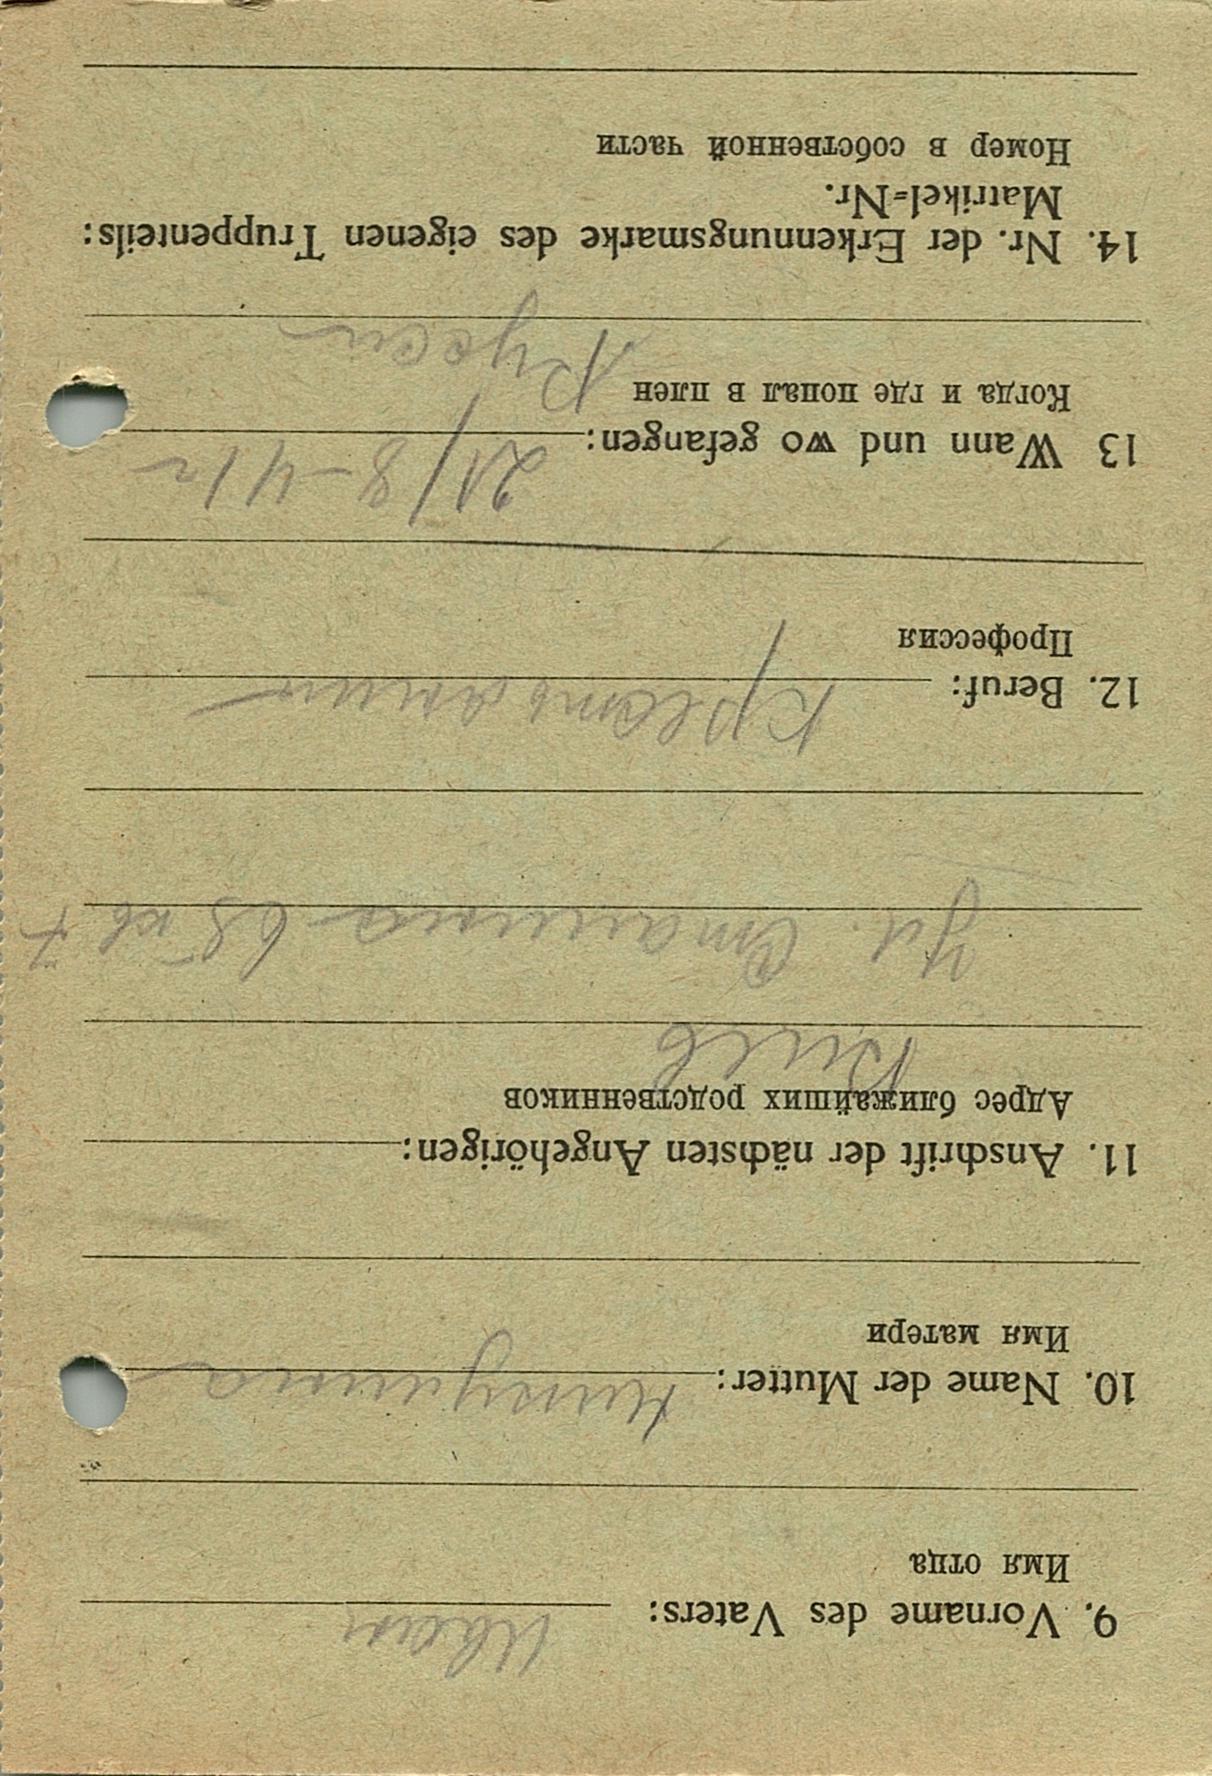 9. Vorname des Vaters: Иван
Имя отца
10. Name der Mutter:
Имя матери
11. Anschrift der nächsten Angehörigen:
Адрес ближайших родственников
Киев
Ул. Сталина 68 кв 7
12. Beruf: Крестьянин
Профессия
13 Wann und wo gefangen: 21/8-41 г
Когда и где попал в плен
14. Nr. der Erkennungsmarke des eigenen Truppenteils:
Matrikel=Nr.
Номер в собственной части